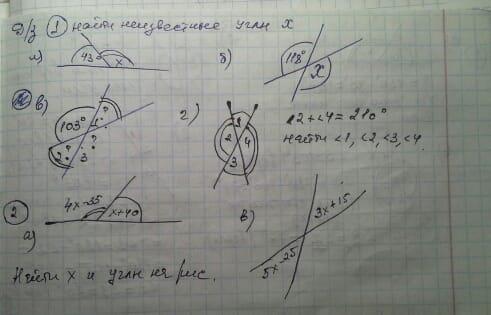 Д/з ① Найти неизвестные углы x
а) 43° x б) 118° x
в) 103° 1 ? 2 ? 3 ?
г) 1 2 3 4 ∠2+∠4=210°
Найти ∠1, ∠2, ∠3, ∠4.
② 4x-35 x+40 в) 3x+15
а) 5x-25
Найти x и углы на рис.